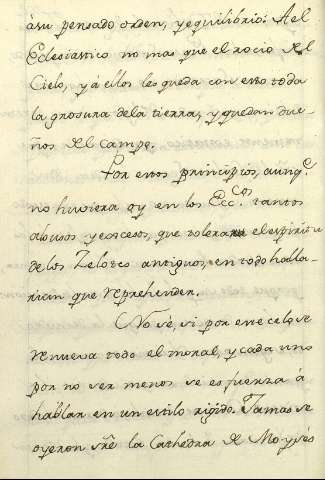 à su pensado orden, y equilibrio: Ael
Eclesiastico no mas que el rocio del
Cielo, y á ellos les queda con esto toda
la grosura dela tierra, y quedan due-
ños del campo.
Por estos principios, aunq.e
no huviera oy en los Ecc.cos tantos
abusos y excesos, que tolera el espiritu
de los Zelotes antiguos, en todo halla-
rian que reprehender.
No sè, si por este celo se
renueva todo el moral, y cada uno
por no ser menos se esfuerza à
hablar en un estilo rigido. Jamas se
oyeron sre la Cathedra de Moysés